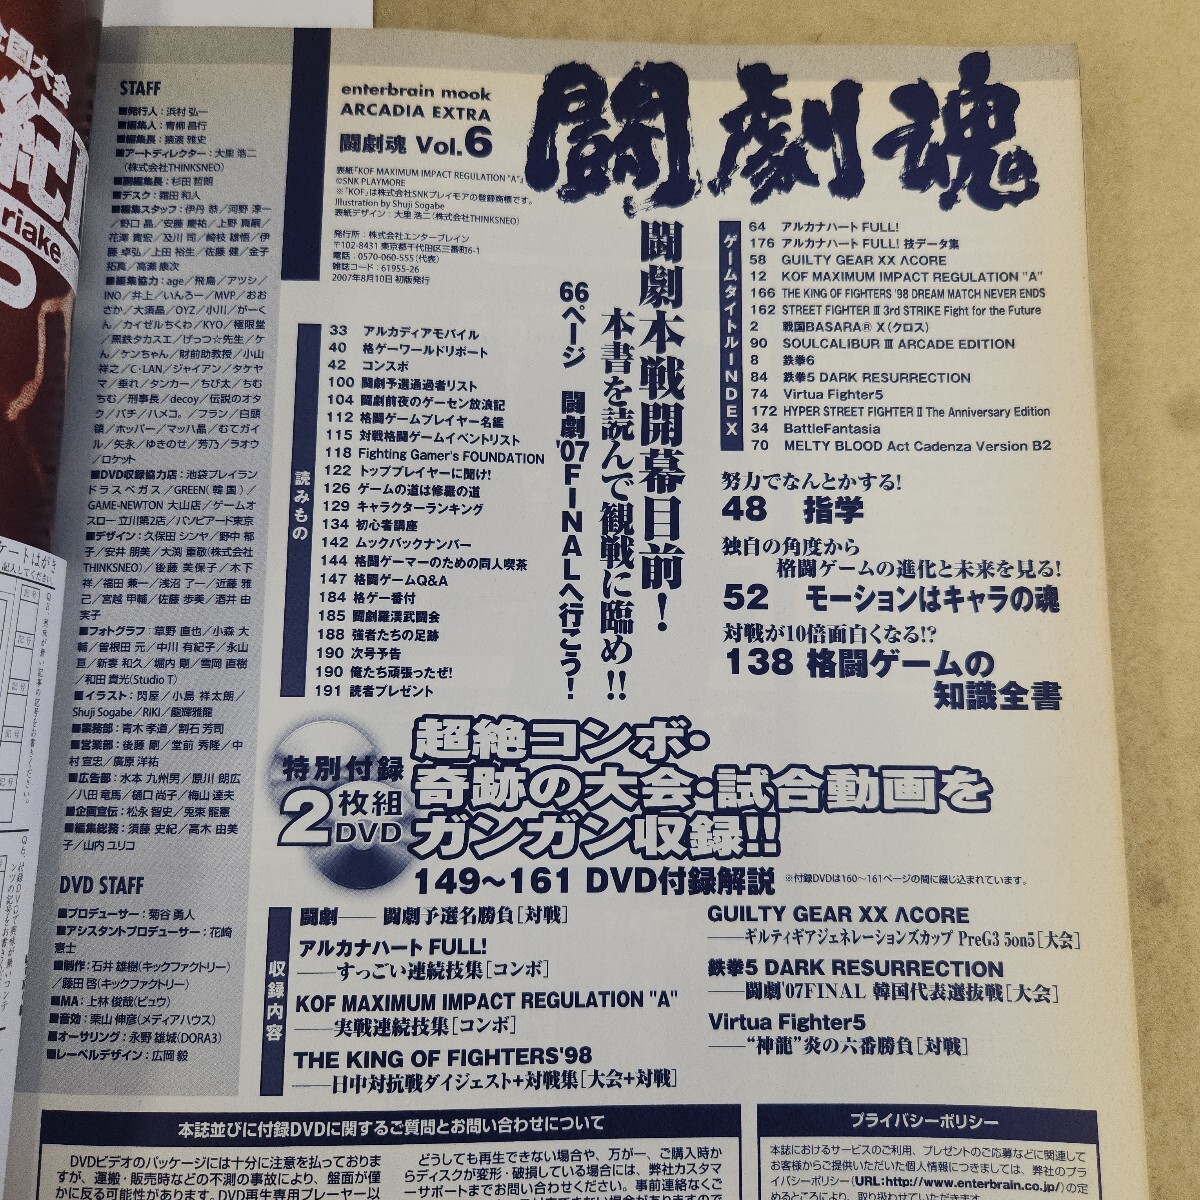 全國大会
riake
STAFF
■発行人：浜村 弘一
■編集人：青柳 昌行
■編集長：猿渡 雅史
■アートディレクター：大里 浩二
(株式会社THINKSNEO)
■副編集長：杉田 哲朗
■デスク：霜田 和人
■編集スタッフ：伊丹 恭／河野 淳一
／野口 晶／安藤 慶祐／上野 真嗣／
花澤 貴宏／及川 司／崎枝 雄悟／伊
藤 卓弘／上田 裕生／佐藤 健／金子
拓真／高瀬 康次
■編集協力：age／飛鳥／アツシ／
INO／井上／いんろー／MVP／おお
さか／大須晶／OYZ／小川／がーく
ん／カイゼルちくわ／KYO／極限堂
／黒鉄タカスエ／げっつ☆先生／ケ
ん／ケンちゃん／財前助教授／小山
祥之／C・LAN／ジャイアン／タケヤ
マ／垂れ／タンカー／ちび太／ちむ
ちむ／刑事長／decoy／伝説のオタ
ク／パチ／ハメコ。／フラン／白頭
領／ホッパー／マッハ晶／むてガイ
ル／矢永／ゆきのせ／芳乃／ラオウ
／ロケット
■DVD収録協力店：池袋プレイラン
ドラスベガス／GREEN(韓国)／
GAME-NEWTON 大山店／ゲームオ
スロー 立川第2店／バンピアード東京
■デザイン：久保田 シンヤ／野中 郁
子／安井 朋美／大渕 重敬(株式会社
THINKSNEO)／後藤 美保子／木下
祥／福田 兼一／浅沼 了一／近藤 雅
己／宮越 甲輔／佐藤 歩美／酒井 由
実子
■フォトグラフ：草野 直也／小森 大
輔／曽根田 元／中川 有紀子／永山
亘／新妻 和久／堀内 剛／雪岡 直樹
／和田 貴光(Studio T)
■イラスト：閃屋／小島 祥太朗／
Shuji Sogabe／RIKI／龍輝雅龍
■業務部：青木 孝道／割石 芳司
■営業部：後藤 剛／堂前 秀隆／中
村 宣宏／廣原 洋祐
■広告部：水本 九州男／原川 朗広
／八田 竜馬／樋口 尚子／梅山 達夫
■企画宣伝：松永 智史／兎束 龍憲
■編集総務：須藤 史紀／高木 由美
子／山内 ユリコ
DVD STAFF
■プロデューサー：菊谷 勇人
■アシスタントプロデューサー：花崎
憲士
■制作：石井 雄樹(キックファクトリー)
／藤田 啓(キックファクトリー)
■MA：上林 俊哉(ビュウ)
■音効：栗山 伸彦(メディアハウス)
■オーサリング：永野 雄城(DORA3)
■レーベルデザイン：広岡 毅
enterbrain mook
ARCADIA EXTRA
闘劇魂 Vol.6
表紙「KOF MAXIMUM IMPACT REGULATION "A"」
©SNK PLAYMORE
※「KOF」は株式会社SNKプレイモアの登録商標です。
Illustration by Shuji Sogabe
表紙デザイン：大里 浩二(株式会社THINKSNEO)
発行所：株式会社エンターブレイン
〒102-8431 東京都千代田区三番町6-1
電話：0570-060-555(代表)
雑誌コード：61955-26
2007年8月10日 初版発行
闘劇魂
読みもの
33 アルカディアモバイル
40 格ゲーワールドリポート
42 コンスポ
100 闘劇予選通過者リスト
104 闘劇前夜のゲーセン放浪記
112 格闘ゲームプレイヤー名鑑
115 対戦格闘ゲームイベントリスト
118 Fighting Gamer's FOUNDATION
122 トッププレイヤーに聞け!
126 ゲームの道は修羅の道
129 キャラクターランキング
134 初心者講座
142 ムックバックナンバー
144 格闘ゲーマーのための同人喫茶
147 格闘ゲームQ&A
184 格ゲー番付
185 闘劇羅漢武闘会
188 強者たちの足跡
190 次号予告
190 俺たち頑張ったぜ!
191 読者プレゼント
闘劇本戦開幕目前！
本書を読んで観戦に臨め!!
66ページ 闘劇'07FINALへ行こう！
ゲームタイトルーINDEX
64 アルカナハート FULL!
176 アルカナハート FULL! 技データ集
58 GUILTY GEAR XX ΛCORE
12 KOF MAXIMUM IMPACT REGULATION "A"
166 THE KING OF FIGHTERS '98 DREAM MATCH NEVER ENDS
162 STREET FIGHTER Ⅲ 3rd STRIKE Fight for the Future
2 戦国BASARA® X(クロス)
90 SOULCALIBUR Ⅲ ARCADE EDITION
8 鉄拳6
84 鉄拳5 DARK RESURRECTION
74 Virtua Fighter5
172 HYPER STREET FIGHTER Ⅱ The Anniversary Edition
34 BattleFantasia
70 MELTY BLOOD Act Cadenza Version B2
努力でなんとかする!
48 指学
独自の角度から
格闘ゲームの進化と未来を見る!
52 モーションはキャラの魂
対戦が10倍面白くなる!?
138 格闘ゲームの
知識全書
特別付録
2枚組
DVD
超絶コンボ・
奇跡の大会・試合動画を
ガンガン収録!!
149〜161 DVD付録解説 ※付録DVDは160〜161ページの間に綴じ込まれています。
収録内容
闘劇――闘劇予選名勝負[対戦]
アルカナハート FULL!
――すっごい連続技集[コンボ]
KOF MAXIMUM IMPACT REGULATION "A"
――実戦連続技集[コンボ]
THE KING OF FIGHTERS'98
――日中対抗戦ダイジェスト+対戦集[大会+対戦]
GUILTY GEAR XX ΛCORE
――ギルティギアジェネレーションズカップ PreG3 5on5[大会]
鉄拳5 DARK RESURRECTION
――闘劇'07FINAL 韓国代表選抜戦[大会]
Virtua Fighter5
――"神龍"炎の六番勝負[対戦]
本誌並びに付録DVDに関するご質問とお問い合わせについて
DVDビデオのパッケージには十分に注意を払っておりま
すが、運搬・販売時などの不測の事故により、盤面が僅
かに反る可能性があります。DVD再生専用プレーヤー以
どうしても再生できない場合や、万が一、ご購入時か
らディスクが変形・破損している場合には、弊社カスタマ
ーサポートまでお問い合わせください。事前連絡なくご
プライバシーポリシー
本誌におけるサービスのご利用、プレゼントのご応募などに関連して
お客様からご提供いただいた個人情報につきましては、弊社のプラ
イバシーポリシー(URL:http://www.enterbrain.co.jp/)の定
めるところにより、取り扱わせていただきます。